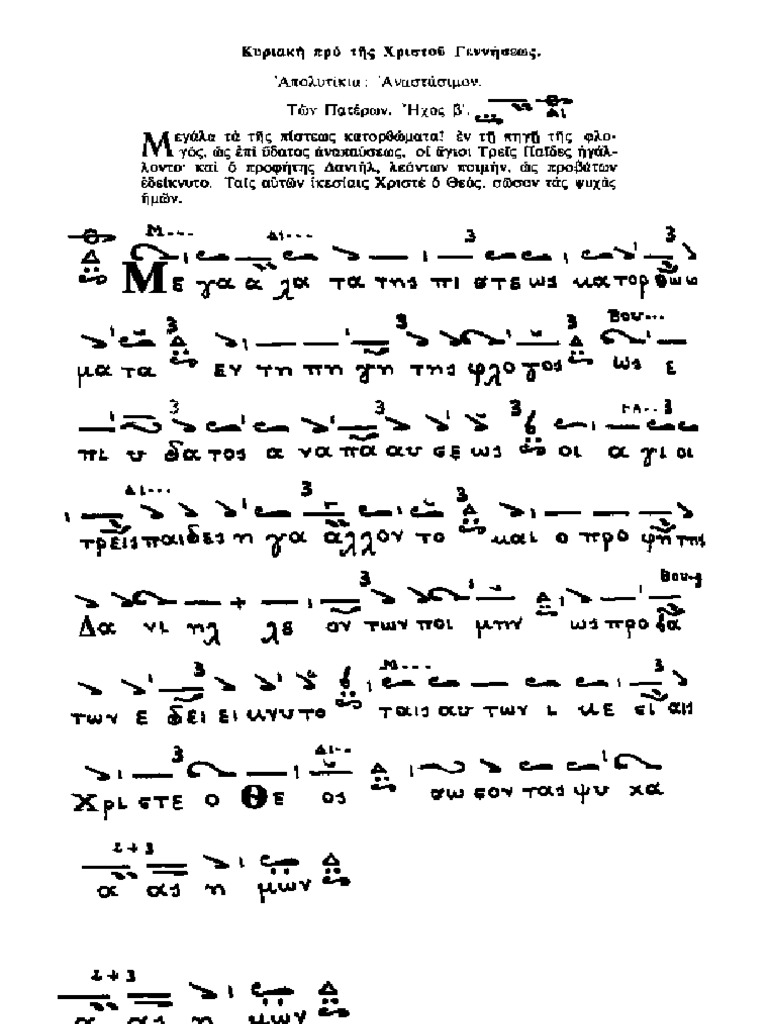 Κυριακὴ πρὸ τῆς Χριστοῦ Γεννήσεως.
Ἀπολυτίκια: Ἀναστάσιμον.
Τῶν Πατέρων. Ἦχος β΄.
Μεγάλα τὰ τῆς πίστεως κατορθώματα! ἐν τῇ πηγῇ τῆς φλο-
γός, ὡς ἐπὶ ὕδατος ἀναπαύσεως, οἱ ἅγιοι Τρεῖς Παῖδες ἠγάλ-
λοντο· καὶ ὁ προφήτης Δανιήλ, λεόντων ποιμήν, ὡς προβάτων
ἐδείκνυτο. Ταῖς αὐτῶν ἱκεσίαις Χριστὲ ὁ Θεός, σῶσον τὰς ψυχὰς
ἡμῶν.
Μ
Δι 3 3
Με γα α λα τα της πι στε ως κα τορ θω ω
3 3 3 Βου
μα τα εν τη πη γη της φλο γος ως ε
3 3 3 3
πι υ δα τος α να πα αυ σε ως οι α γι οι
Δι 3 3
τρεις παι δες η γα α λλον το και ο προ φη της
3 Βου 3
Δα νι ηλ λε ον των ποι μην ως προ βα
3 Μ 3
των ε δει ει κνυ το ταις αυ των ι κε σι αις
3 Δι
Χρι στε ο Θε ος σω σον τας ψυ χα
2+3
α ας η μων
2+3
α ας η μων